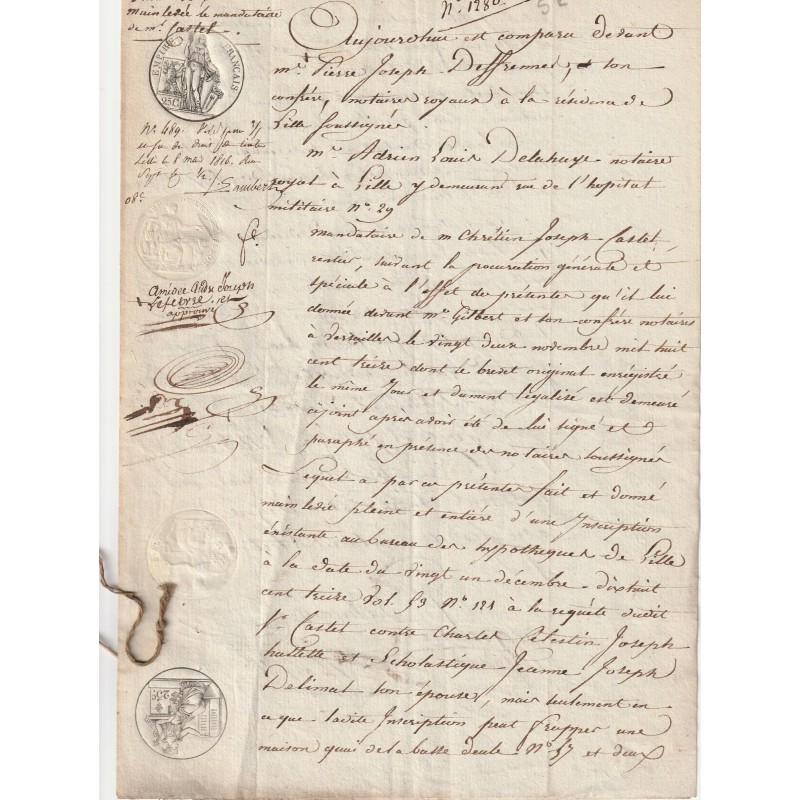 mainlevée le mandataire
de mr. Castel
EMPIRE FRANÇAIS
25C
No. 489.
Lille le 8 mai 1816.
Lambert
08c
Amédée André Joseph
Lefevre
approuvé
25c
No. 1280.
52
Aujourd'hui est comparu devant
me. Pierre Joseph Deffrennes, et son
confrère, notaires royaux à la résidence de
Lille soussignés
me. Adrien Louis Delahaye notaire
royal à Lille y demeurant rue de l'hopital
militaire No. 29
mandataire de m Chrétien Joseph Castel
rentier, suivant la procuration générale et
spéciale à l'effet des présentes qu'il lui
donnée devant me. Gilbert et son confrère notaires
à Versailles le vingt deux novembre mil huit
cent treize dont le brevet original enregistré
le même jour et dument légalisé est demeuré
cijoint après avoir été de lui signé et
paraphé en présence des notaires soussignés
Lequel a par ces présentes fait et donné
mainlevée pleine et entière d'une Inscription
éxistante au bureau des hypotheques de Lille
à la date du vingt un décembre dixhuit
cent treize Vol. 59 No. 181 à la requête dudit
sr. Castel contre Charles Célestin Joseph
hallette et Scholastique Jeanne Joseph
Delimal son épouse, mais seulement en
ce que ladite Inscription peut frapper une
maison quai de la basse deule No. 37 et deux